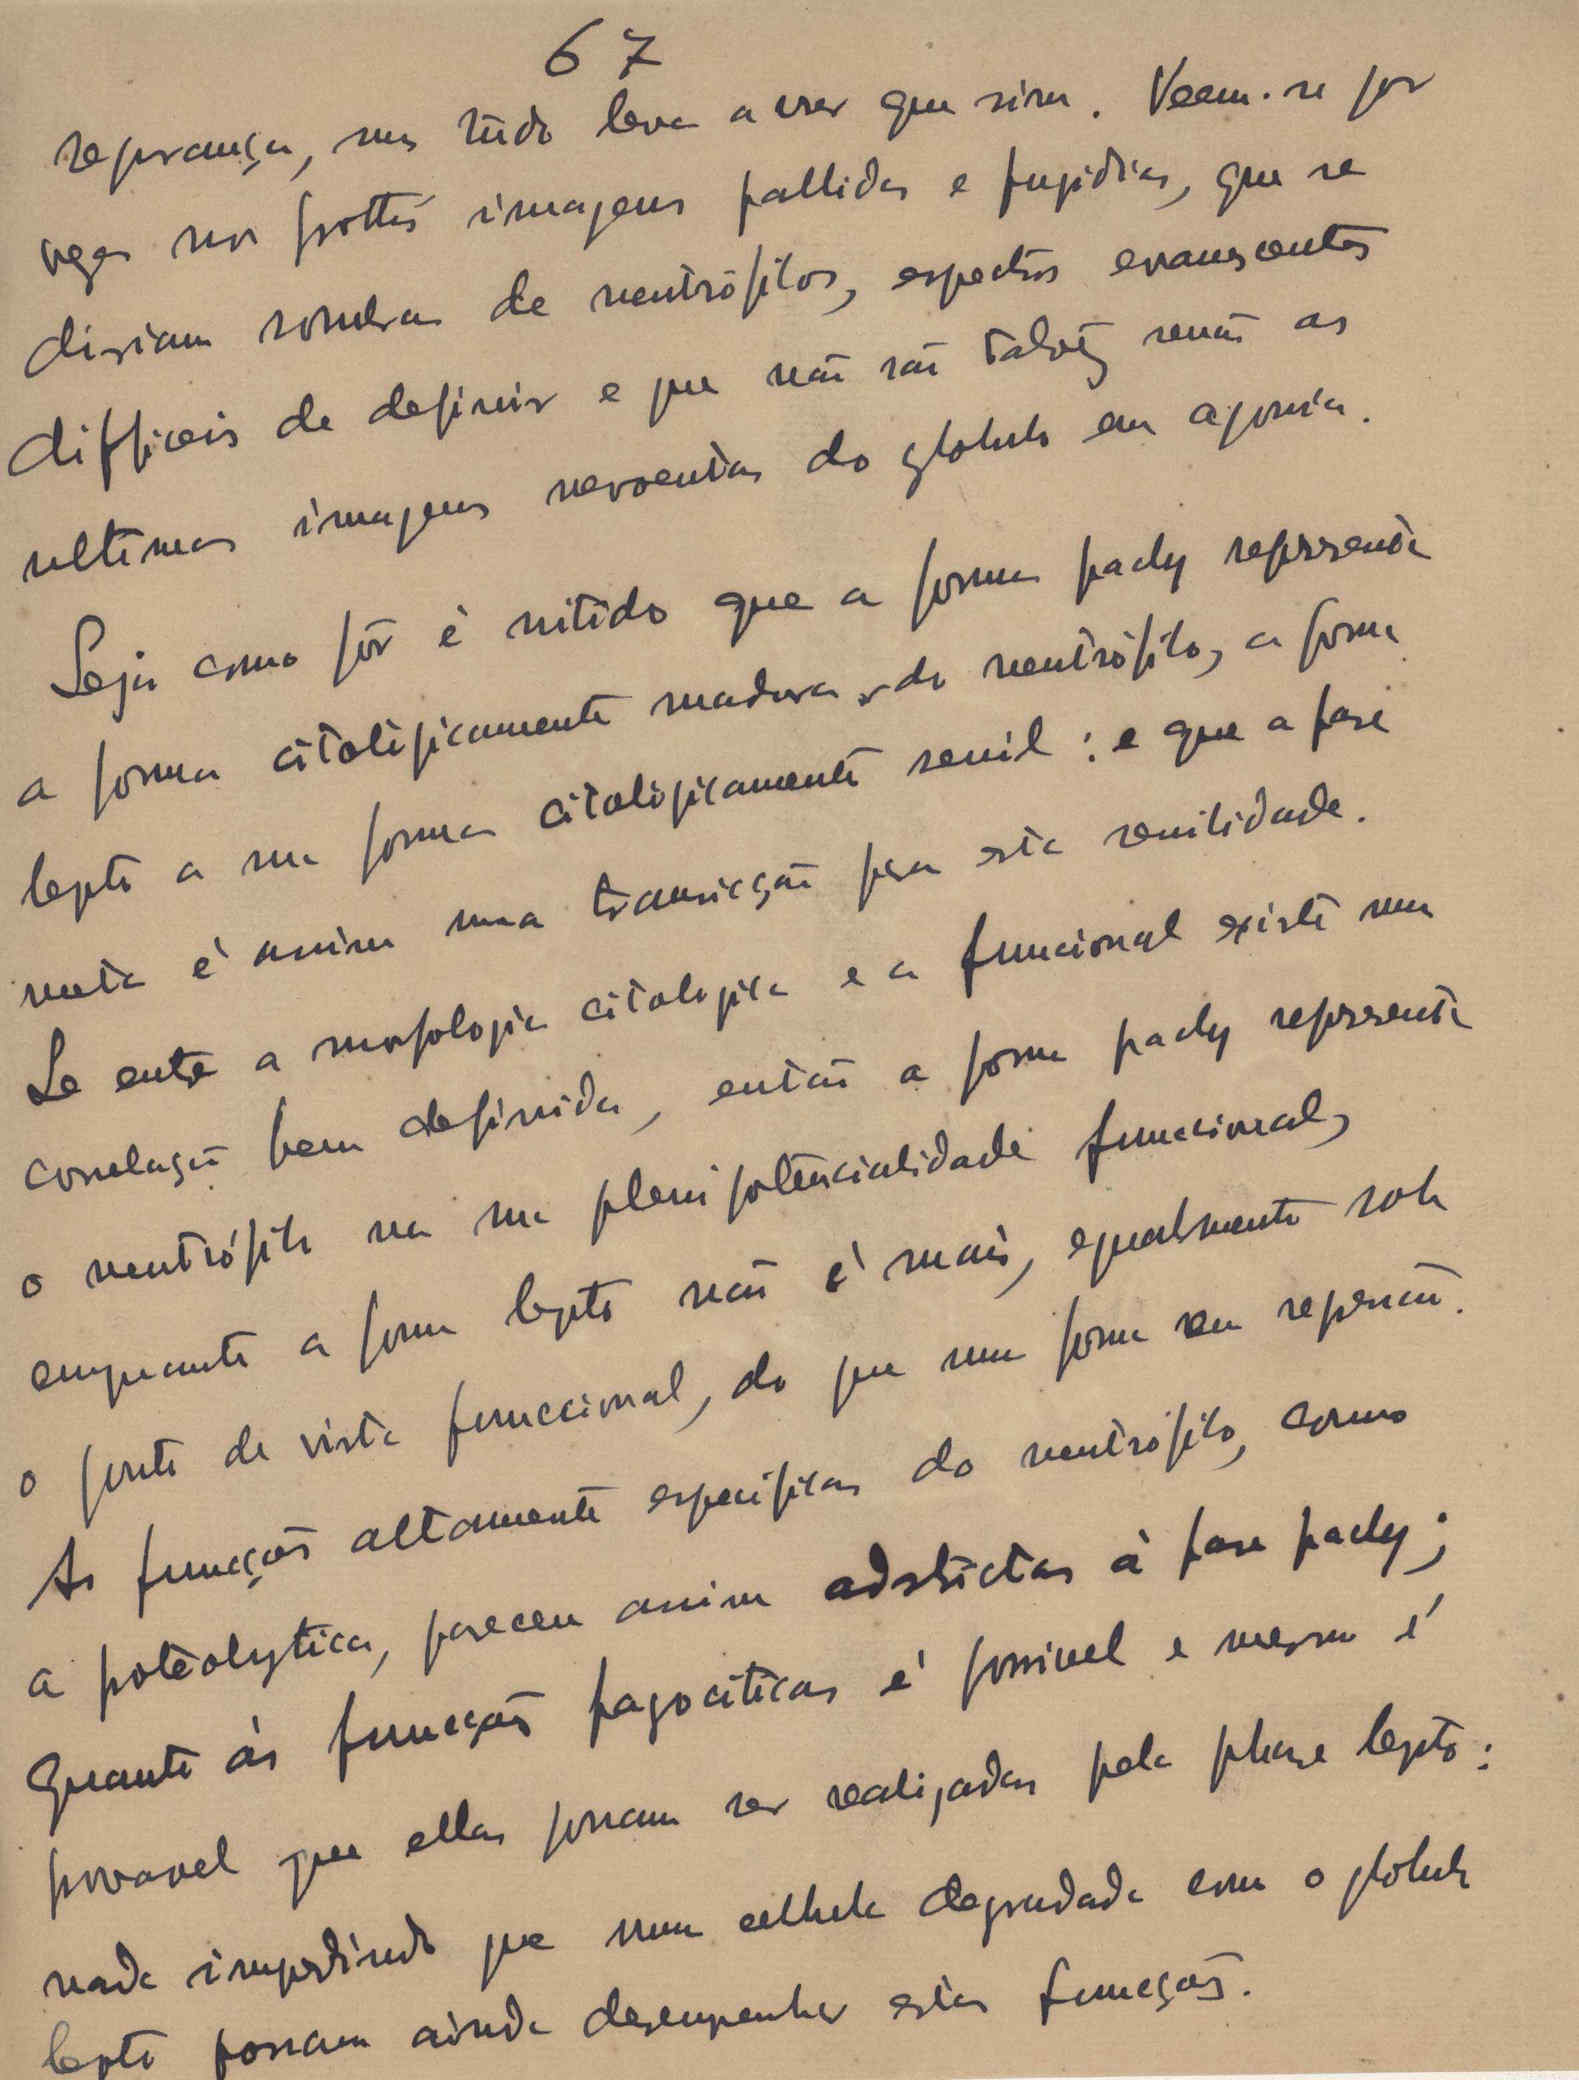 67
segurança, mas tudo leva a crer que sim. Veem-se por
vezes nos frottis imagens pallidas e fugidias, que se
diriam sombras de neutrófilos, espectros evanescentes
difficeis de definir e que não são talvez senão as
ultimas imagens nevoentas do globulo em agonia.
Seja como fôr é nitido que a forma pachy representa
a forma citologicamente madura do neutrófilo, a forma
lepto a sua forma citologicamente senil: e que a fase
meta é assim uma transicção para esta senilidade.
Se entre a morfologia citologica e a funcional existe uma
correlação bem definida, então a forma pachy representa
o neutrófilo na sua plenipotencialidade funccional,
emquanto a forma lepto não é mais, egualmente sob
o ponto de vista funccional, do que uma forma em regressão.
As funcções altamente especificas do neutrófilo, como
a poteolytica, parecem assim adstrictas à fase pachy;
Quanto às funcções fagociticas é possivel e mesmo é
provavel que ellas possam ser realizadas pela phase lepto:
nada impedindo que uma cellula degradada como o globulo
lepto possam ainda desempenhar estas funcções.